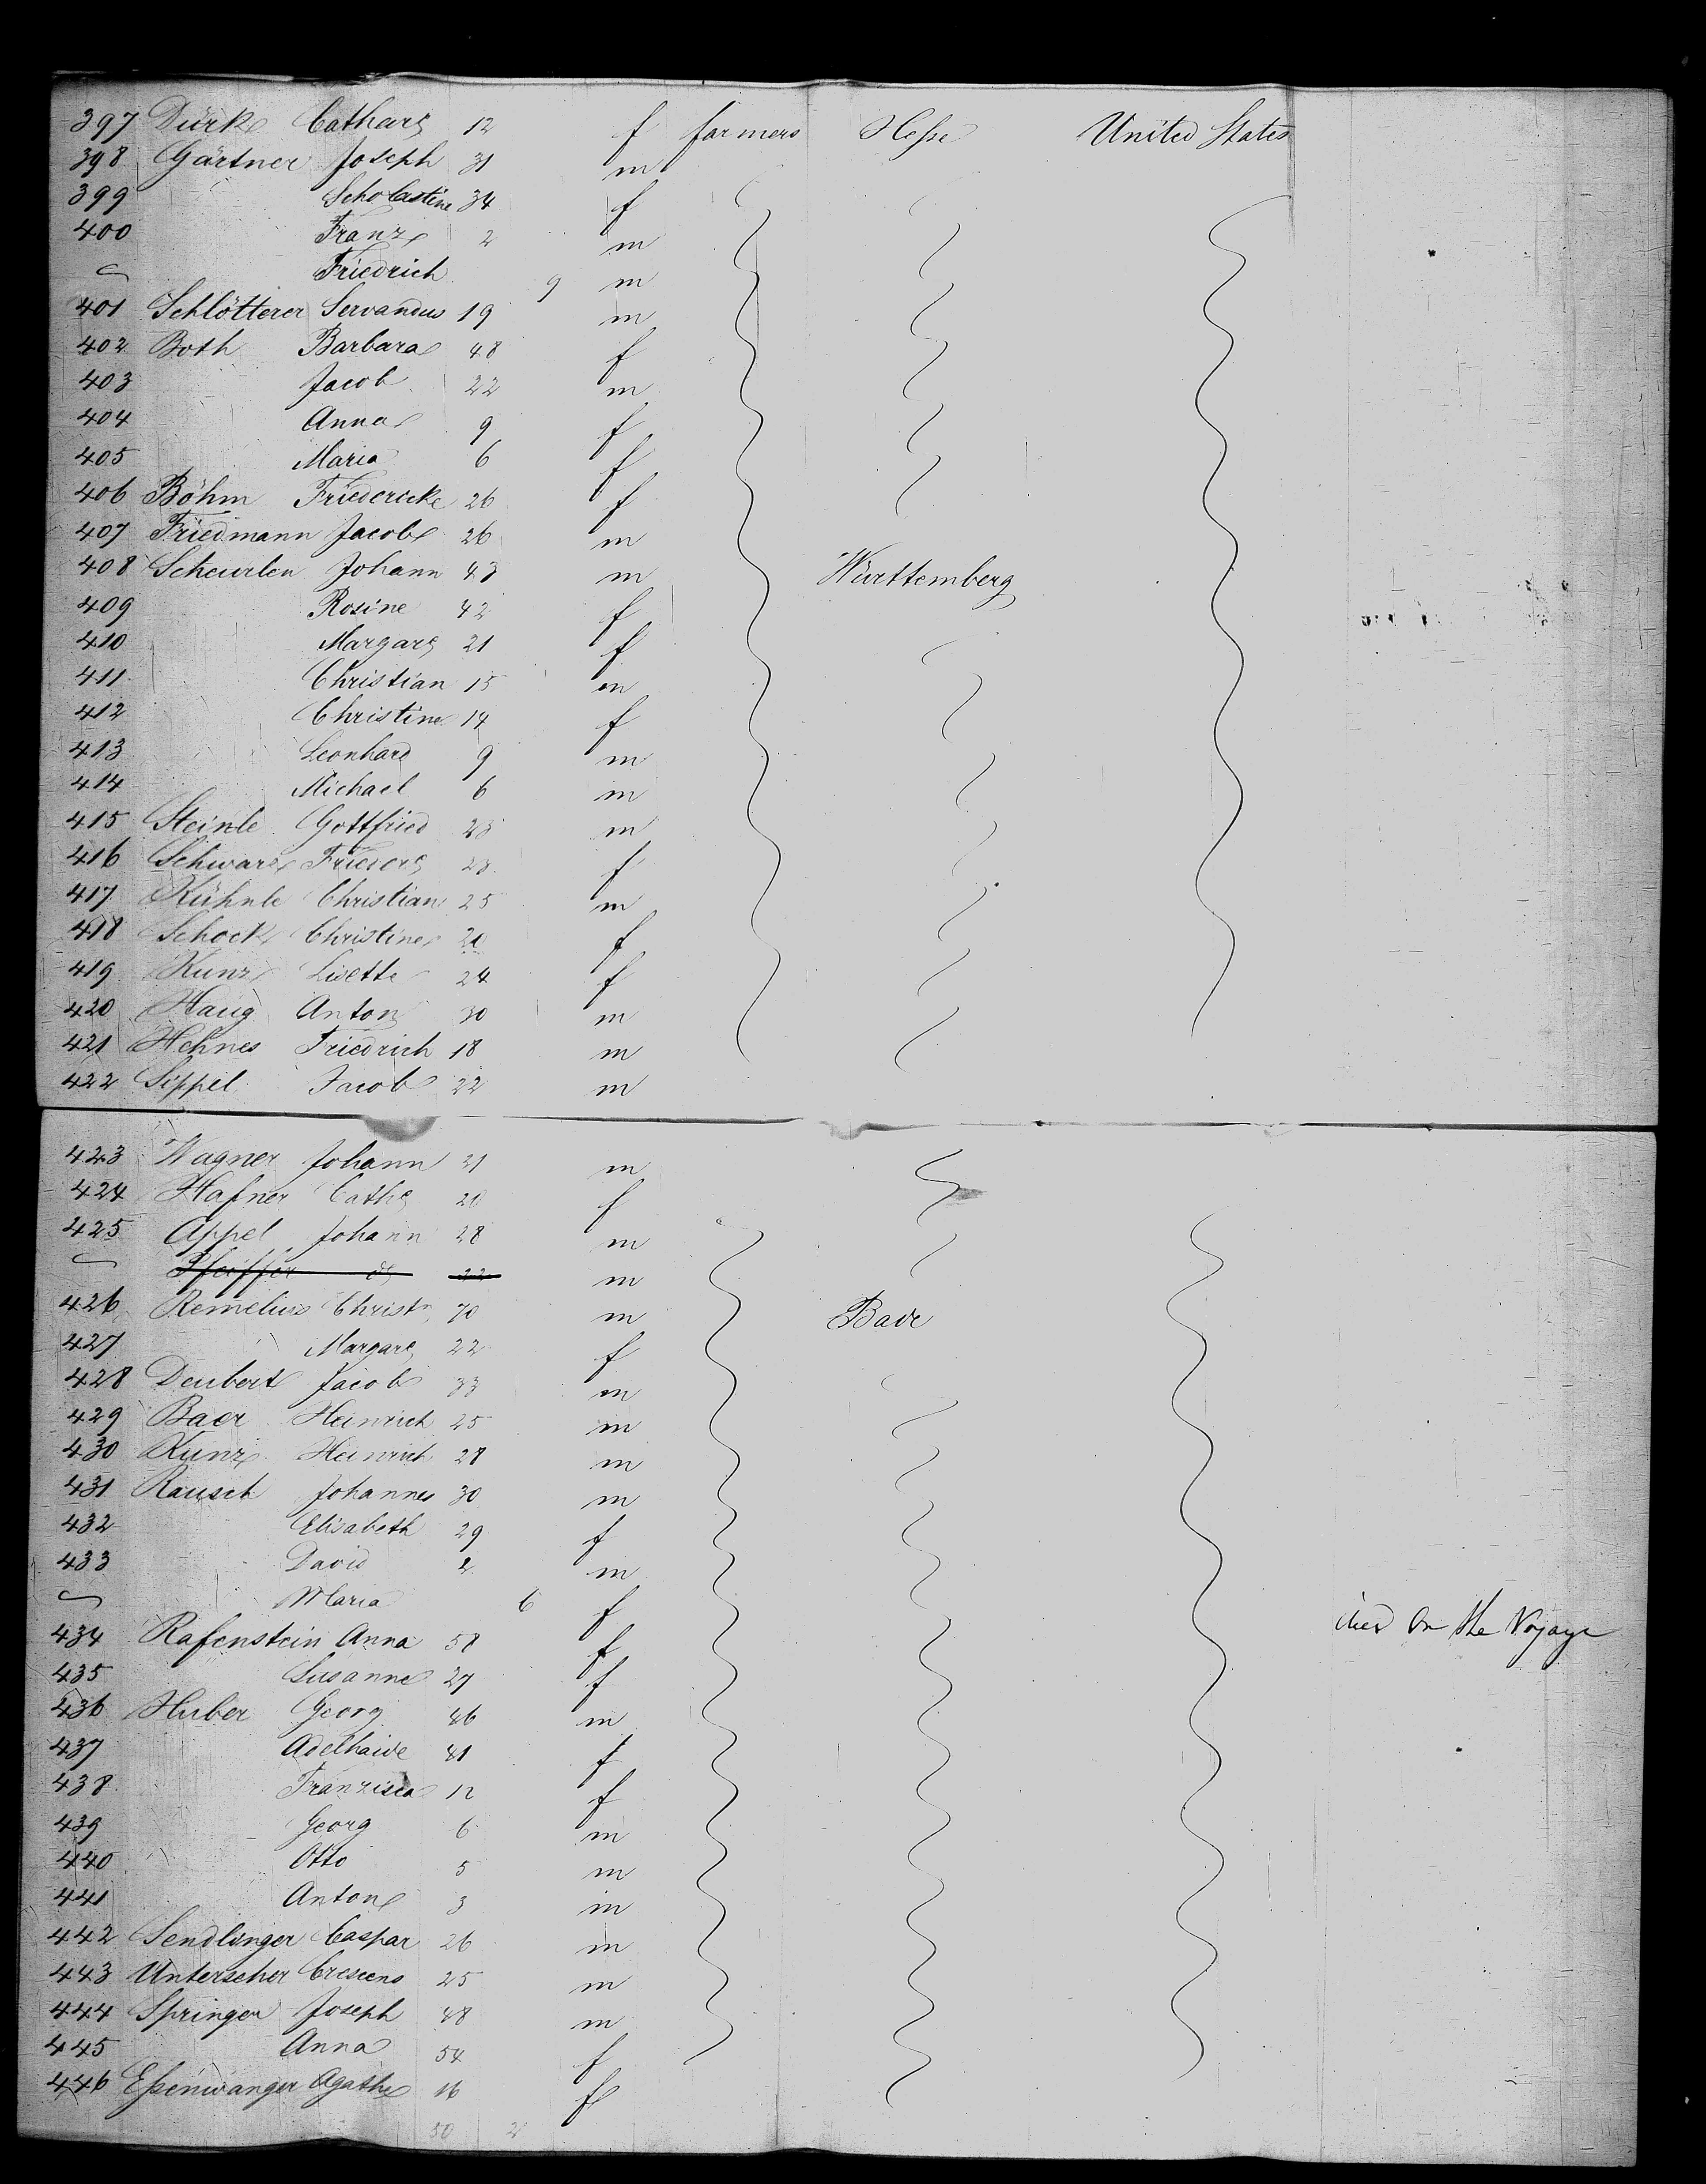 397 Dürk Cathar. 12 f farmers Hesse United States
398 Gärtner Joseph 31 m
399 Scholastine 34 f
400 Franz 2 m
Friedrich 9 m
401 Schlötterer Servandus 19 m
402 Both Barbara 48 f
403 Jacob 22 m
404 Anna 9 f
405 Maria 6 f
406 Böhm Friedericke 26 f
407 Friedmann Jacob 26 m
408 Scheurlen Johann 43 m Württemberg
409 Rosine 42 f
410 Margar. 21 f
411 Christian 15 m
412 Christine 14 f
413 Leonhard 9 m
414 Michael 6 m
415 Steinle Gottfried 23 m
416 Schwarz Frieder. 23 f
417 Kühnle Christian 25 m
418 Schock Christine 20 f
419 Kunz Lisette 24 f
420 Haug Anton 30 m
421 Hehnes Friedrich 18 m
422 Sippel Jacob 22 m
423 Wagner Johann 31 m
424 Hafner Cath. 20 f
425 Appel Johann 28 m
Pfeiffer do 22 m
426 Remelius Christn 70 m Bade
427 Margar. 22 f
428 Deubert Jacob 33 m
429 Baer Heinrich 25 m
430 Kunz Heinrich 28 m
431 Rausch Johannes 30 m
432 Elisabeth 29 f
433 David 2 m
Maria 6 f died on the Voyage
434 Rafenstein Anna 58 f
435 Susanne 27 f
436 Huber Georg 46 m
437 Adelhaide 41 f
438 Franzisca 12 f
439 Georg 6 m
440 Otto 5 m
441 Anton 3 m
442 Sendlinger Caspar 26 m
443 Unterseher Crescens 25 m
444 Springer Joseph 48 m
445 Anna 54 f
446 Eßenwanger Agathe 16 f
50 2